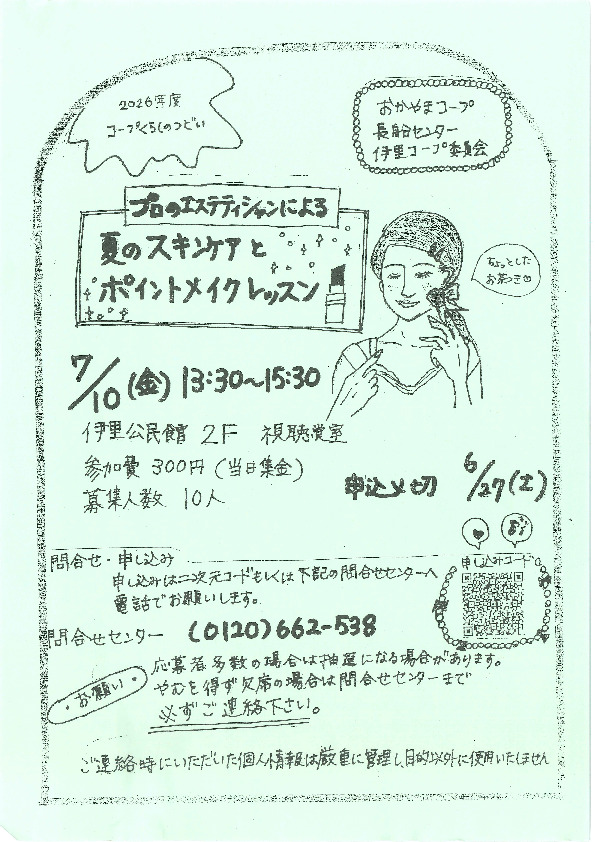 2026年度
コープくらしのつどい
おかやまコープ
長船センター
伊里コープ委員会
プロのエステティシャンによる
夏のスキンケアと
ポイントメイクレッスン
ちょっとした
お茶つき
7/10(金) 13:30～15:30
伊里公民館 2F 視聴覚室
参加費 300円(当日集金)
募集人数 10人
申込〆切 6/27(土)
問合せ・申し込み
申し込みは二次元コードもしくは下記の問合せセンターへ
電話でお願いします。
申し込みコード
問合せセンター (0120)662-538
・お願い・
応募者多数の場合は抽選になる場合があります。
やむを得ず欠席の場合は問合せセンターまで
必ずご連絡下さい。
ご連絡時にいただいた個人情報は厳重に管理し、目的以外に使用いたしません